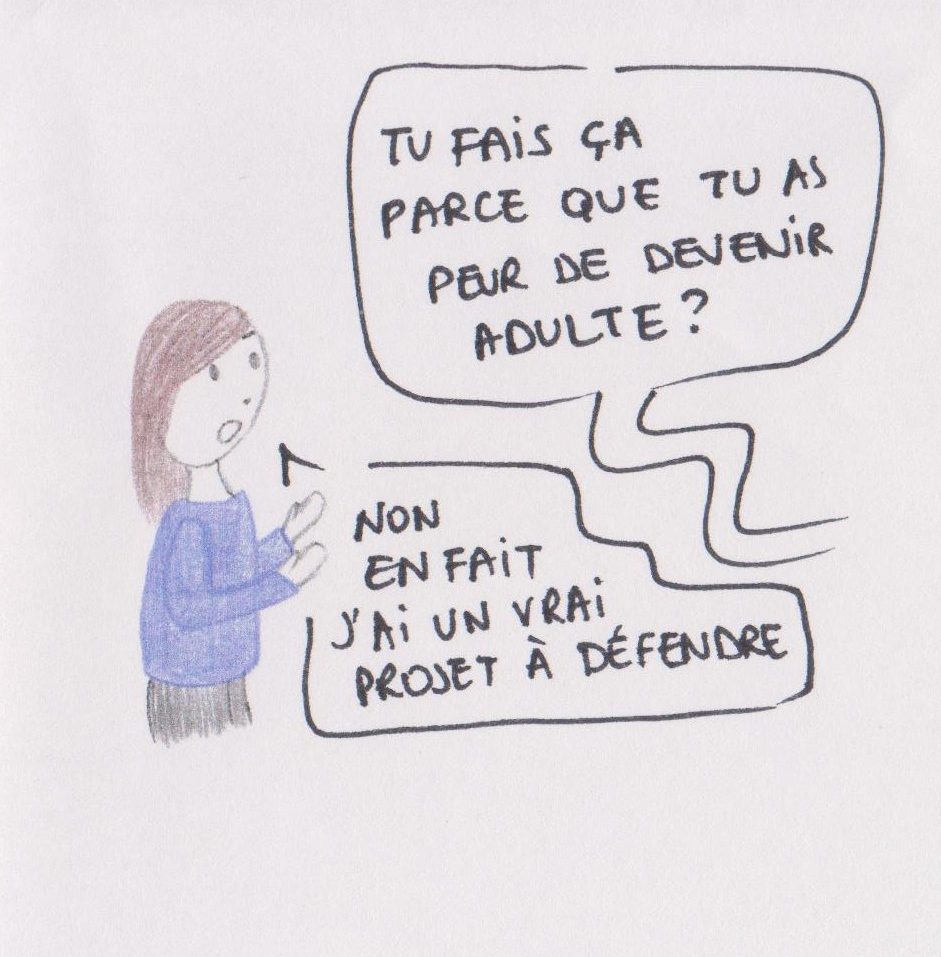 TU FAIS ÇA
PARCE QUE TU AS
PEUR DE DEVENIR
ADULTE?
NON
EN FAIT
J'AI UN VRAI
PROJET À DÉFENDRE